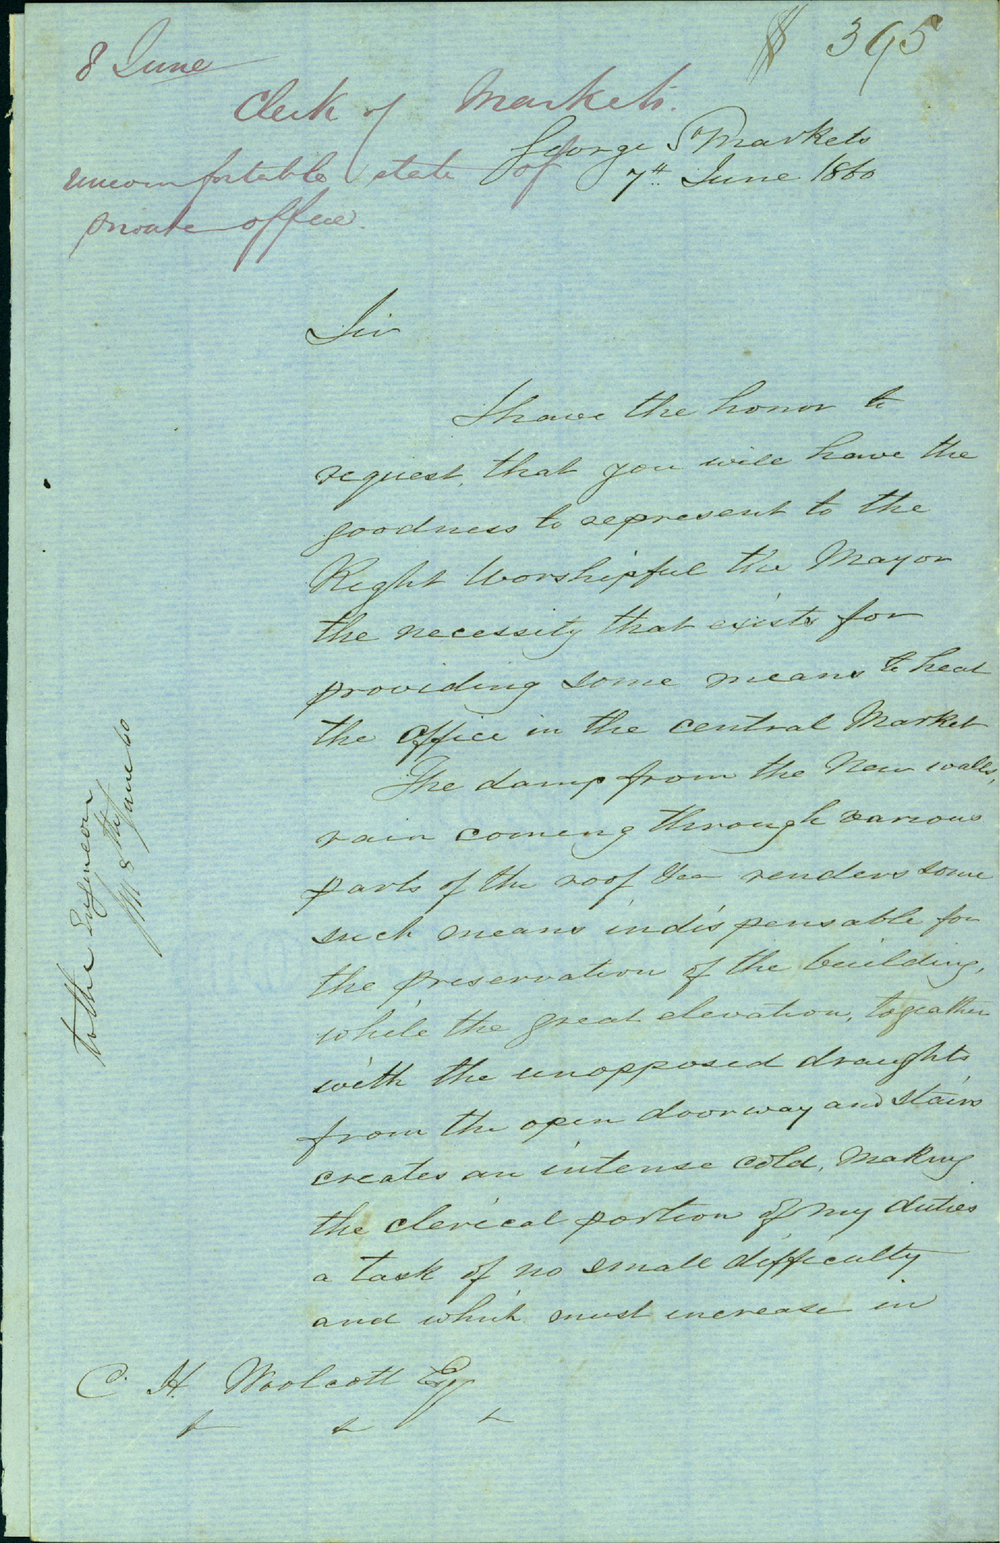 395
8 June
Clerk of Markets.
uncomfortable state of
private office.
George St Markets
7th June 1860
Sir
I have the honor to
request, that you will have the
goodness to represent to the
Right Worshipful the Mayor
the necessity that exists for
providing some means to heat
the office in the central Market
The damp from the New walls,
rain coming through various
parts of the roof &ca renders some
such means indispensable for
the preservation of the building,
while the great elevation, together
with the unopposed draughts
from the open doorway and stairs
creates an intense cold, making
the clerical portion of my duties
a task of no small difficulty
and which must increase in
C. H. Woolcott Esq
To the Engineer
8th June 60